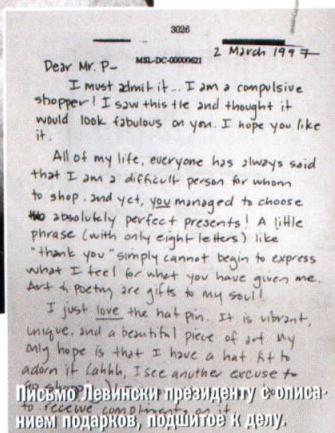 3026
MSL-DC-00000621
2 March 1997
Dear Mr. P-
I must admit it... I am a compulsive
shopper! I saw this tie and thought it
would look fabulous on you. I hope you like
it.
All of my life, everyone has always said
that I am a difficult person for whom
to shop. and yet, you managed to choose
two absolutely perfect presents! A little
phrase (with only eight letters) like
"thank you" simply cannot begin to express
what I feel for what you have given me.
Art & Poetry are gifts to my soul!
I just love the hat pin. It is vibrant,
unique, and a beautiful piece of art. My
only hope is that I have a hat fit to
adorn it (ahhh, I see another excuse to
go shopping)
to receive compliments on it
Письмо Левински президенту с описа-
нием подарков, подшитое к делу.